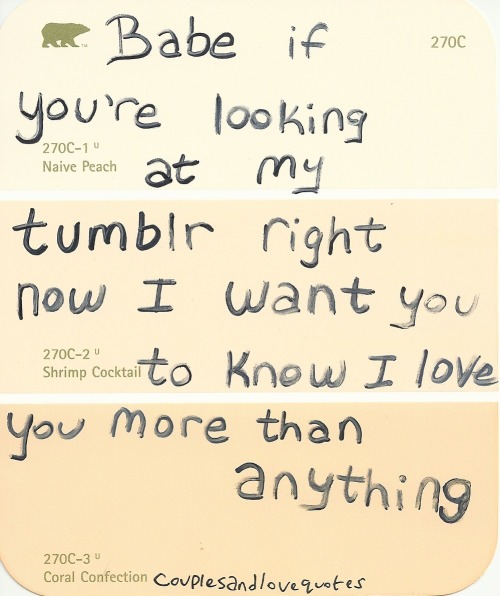 Babe if
270C
you're looking
270C-1 U
Naive Peach
at my
tumblr right
now I want you
270C-2 U
Shrimp Cocktail
to know I love
you more than
anything
270C-3 U
Coral Confection
couplesandlovequotes